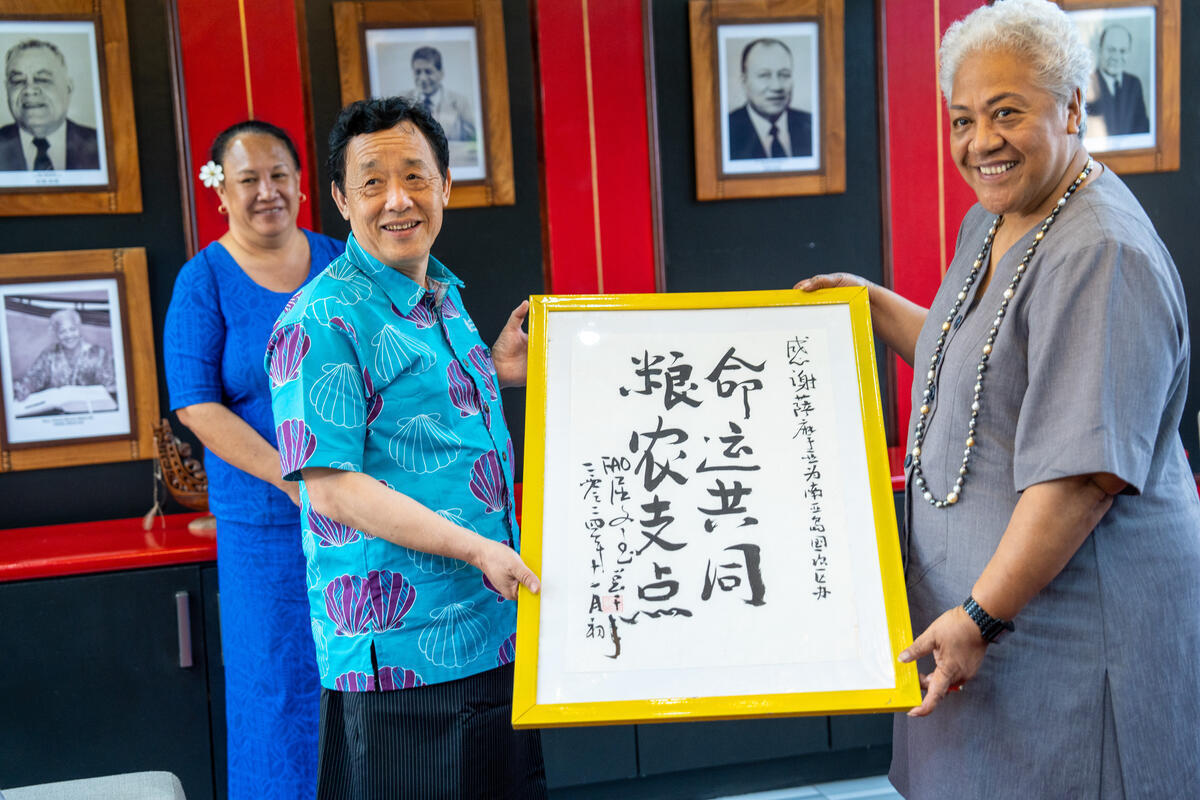 感谢萨摩亚为南岛国次区办
命运共同
粮农支点
FAO屈冬玉
二〇二四年十一月初